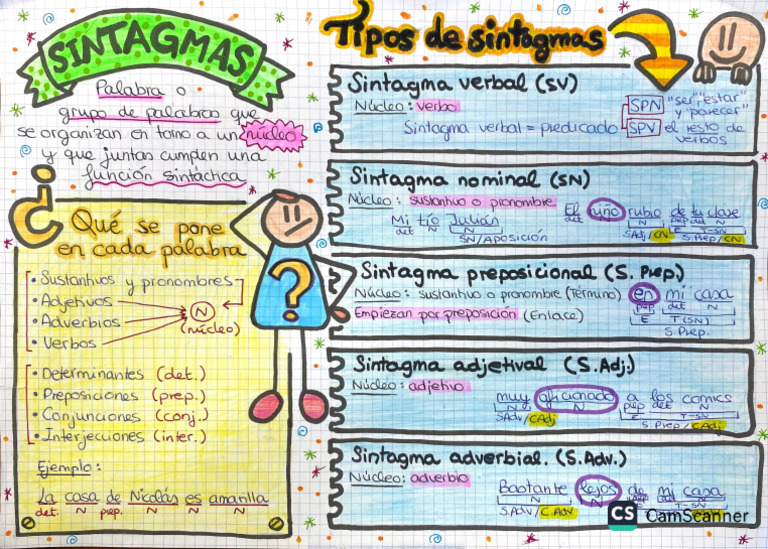 SINTAGMAS
Palabra o
grupo de palabras que
se organizan en torno a un núcleo
y que juntas cumplen una
función sintáctica
¿Qué se pone
en cada palabra
• Sustantivos y pronombres
• Adjetivos
• Adverbios
• Verbos
N
(núcleo)
• Determinantes (det.)
• Preposiciones (prep.)
• Conjunciones (conj.)
• Interjecciones (inter.)
Ejemplo:
La casa de Nicolás es amarilla
det. N prep. N N N
?
Tipos de sintagmas
Sintagma verbal (SV)
Núcleo: verbo
Sintagma verbal = predicado
SPN "ser" "estar"
y "parecer"
SPV el resto de
verbos
Sintagma nominal (SN)
Núcleo: sustantivo o pronombre
Mi tío Julián
det N N
SN/Aposición
El niño rubio de tu clase
det N N prep det N
E T-SN
SAdj/CN S.Prep/CN
Sintagma preposicional (S. Prep)
Núcleo: sustantivo o pronombre (Término)
Empiezan por preposición (Enlace)
en mi casa
prep det N
E T(SN)
S.Prep.
Sintagma adjetival (S.Adj.)
Núcleo: adjetivo
muy aficionado a los comics
N N prep det N
E T-SN
SAdv/CAdj S.Prep/CAdj
Sintagma adverbial. (S.Adv.)
Núcleo: adverbio
Bastante lejos de mi casa
N N det N
S.Adv/C.Adv
CS CamScanner